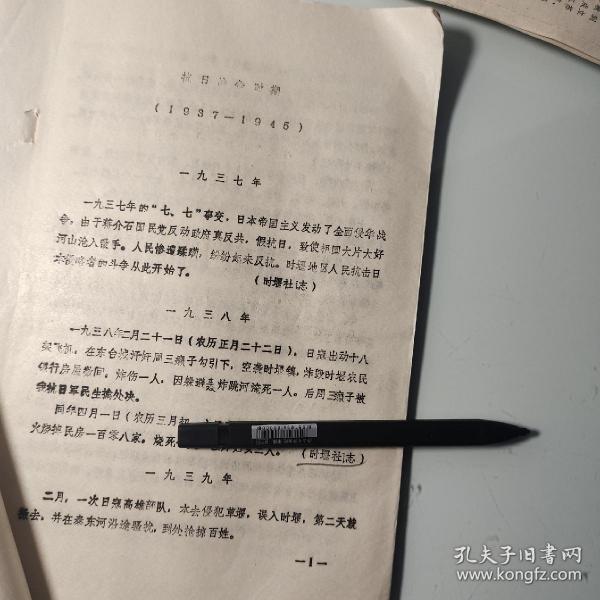 抗日战争时期
(1937—1945)
一九三七年
一九三七年的“七、七”事变，日本帝国主义发动了全面侵华战
争。由于蒋介石国民党反动政府真反共，假抗日，致使祖国大片大好
河山沦入敌手。人民惨遭蹂躏，纷纷起来反抗。时堰地区人民抗击日
本侵略者的斗争从此开始了。 （时堰社志）
一九三八年
一九三八年二月二十一日（农历正月二十二日），日寇出动十八
架飞机，在东台汉奸周三癞子勾引下，空袭时堰镇，炸毁时堰农民
银行房屋 间，炸伤一人，因躲 跳河淹死一人。后周三癞子被
我抗日军民生擒处决。
同年四月一日（农历三月初
火烧掉民房一百零八家。烧死 二人。 （时堰社志）
一九三九年
二月，一次日寇高雄部队，本去侵犯草堰，误入时堰，第二天就
撤去。并在泰东河沿途骚扰，到处抢掠百姓。
—1—
孔夫子旧书网
www.kongfz.com